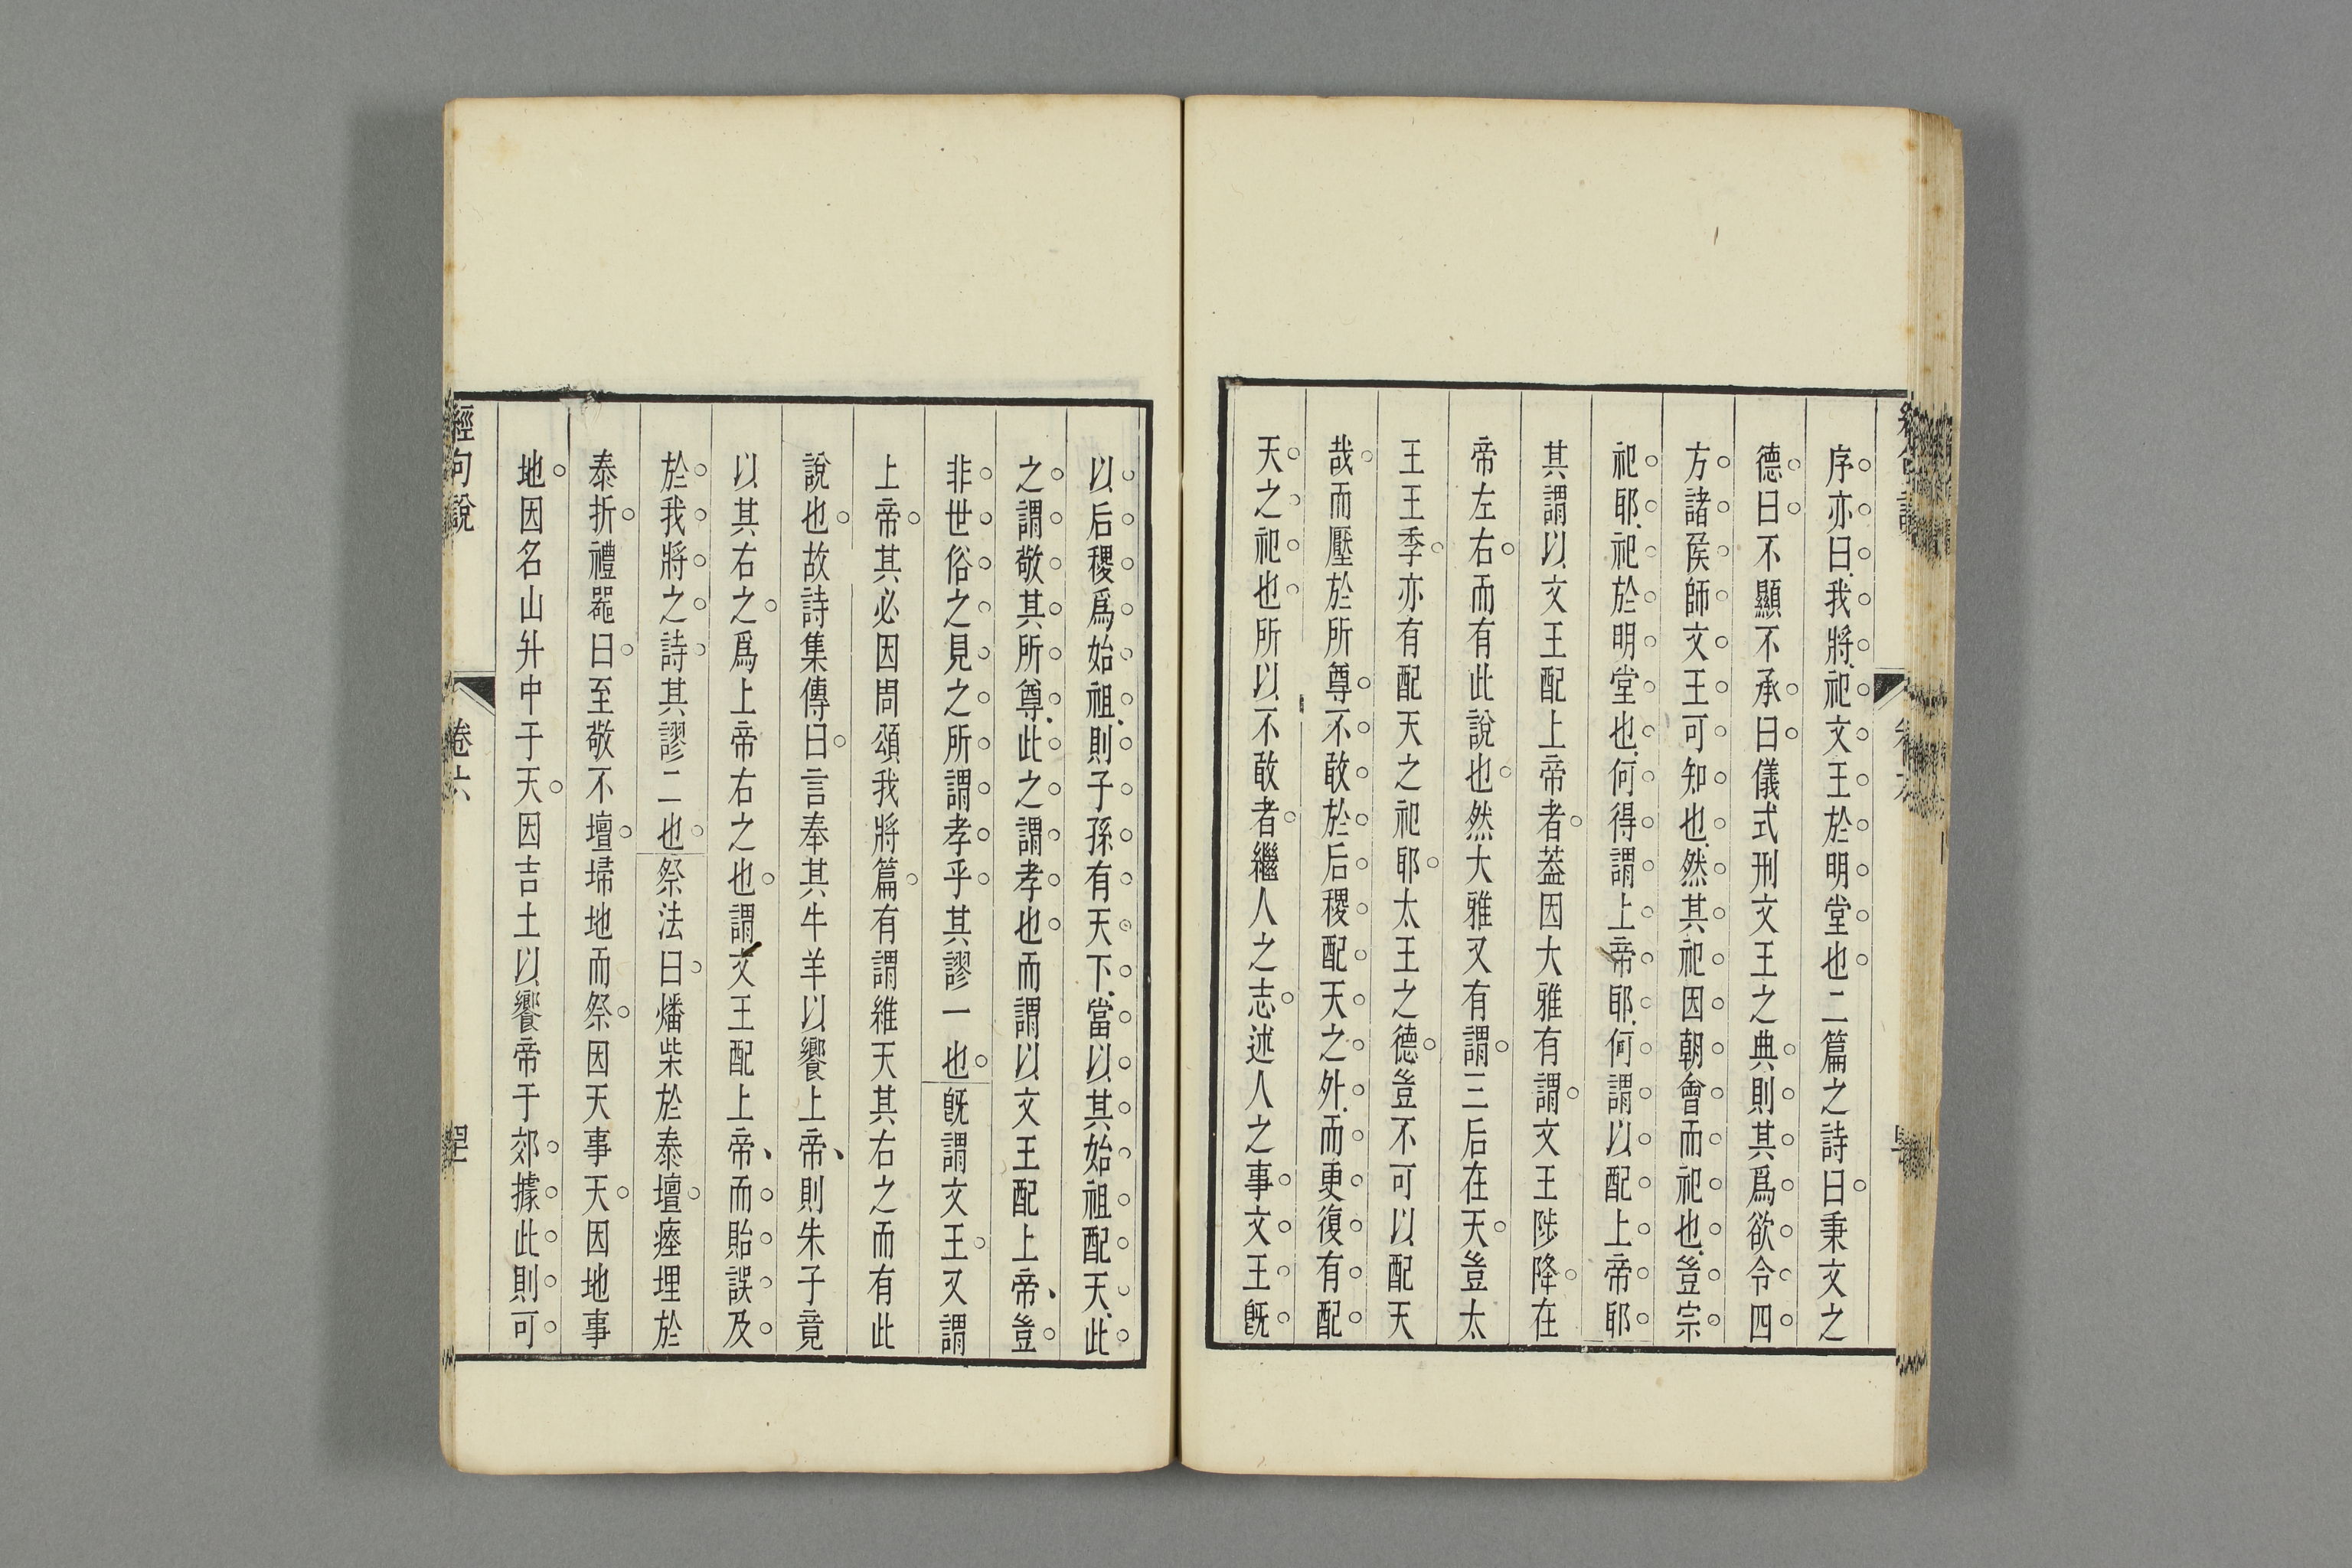 序亦曰我將祀文王於明堂也二篇之詩曰秉文之
德曰不顯不承曰儀式刑文王之典則其爲欲令四
方諸侯師文王可知也然其祀因朝會而祀也豈宗
祀耶祀於明堂也何得謂上帝耶何謂以配上帝耶
其謂以文王配上帝者蓋因大雅有謂文王陟降在
帝左右而有此說也然大雅又有謂三后在天豈太
王王季亦有配天之祀耶太王之德豈不可以配天
哉而壓於所尊不敢於后稷配天之外而更復有配
天之祀也所以不敢者繼人之志述人之事文王旣
以后稷爲始祖則子孫有天下當以其始祖配天此
之謂敬其所尊此之謂孝也而謂以文王配上帝豈
非世俗之見之所謂孝乎其謬一也旣謂文王又謂
上帝其必因周頌我將篇有謂維天其右之而有此
說也故詩集傳曰言奉其牛羊以饗上帝則朱子竟
以其右之爲上帝右之也謂文王配上帝而貽誤及
於我將之詩其謬二也祭法曰燔柴於泰壇瘞埋於
泰折禮器曰至敬不壇埽地而祭因天事天因地事
地因名山升中于天因吉土以饗帝于郊據此則可
經句說
卷六